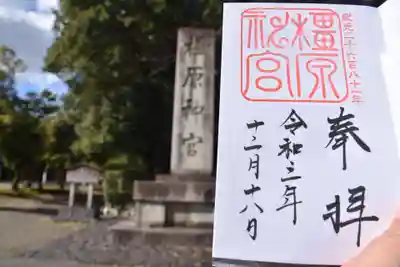 橿原神宮
二千六百八十一年
奉拝
橿原神宮
令和三年
十二月十八日